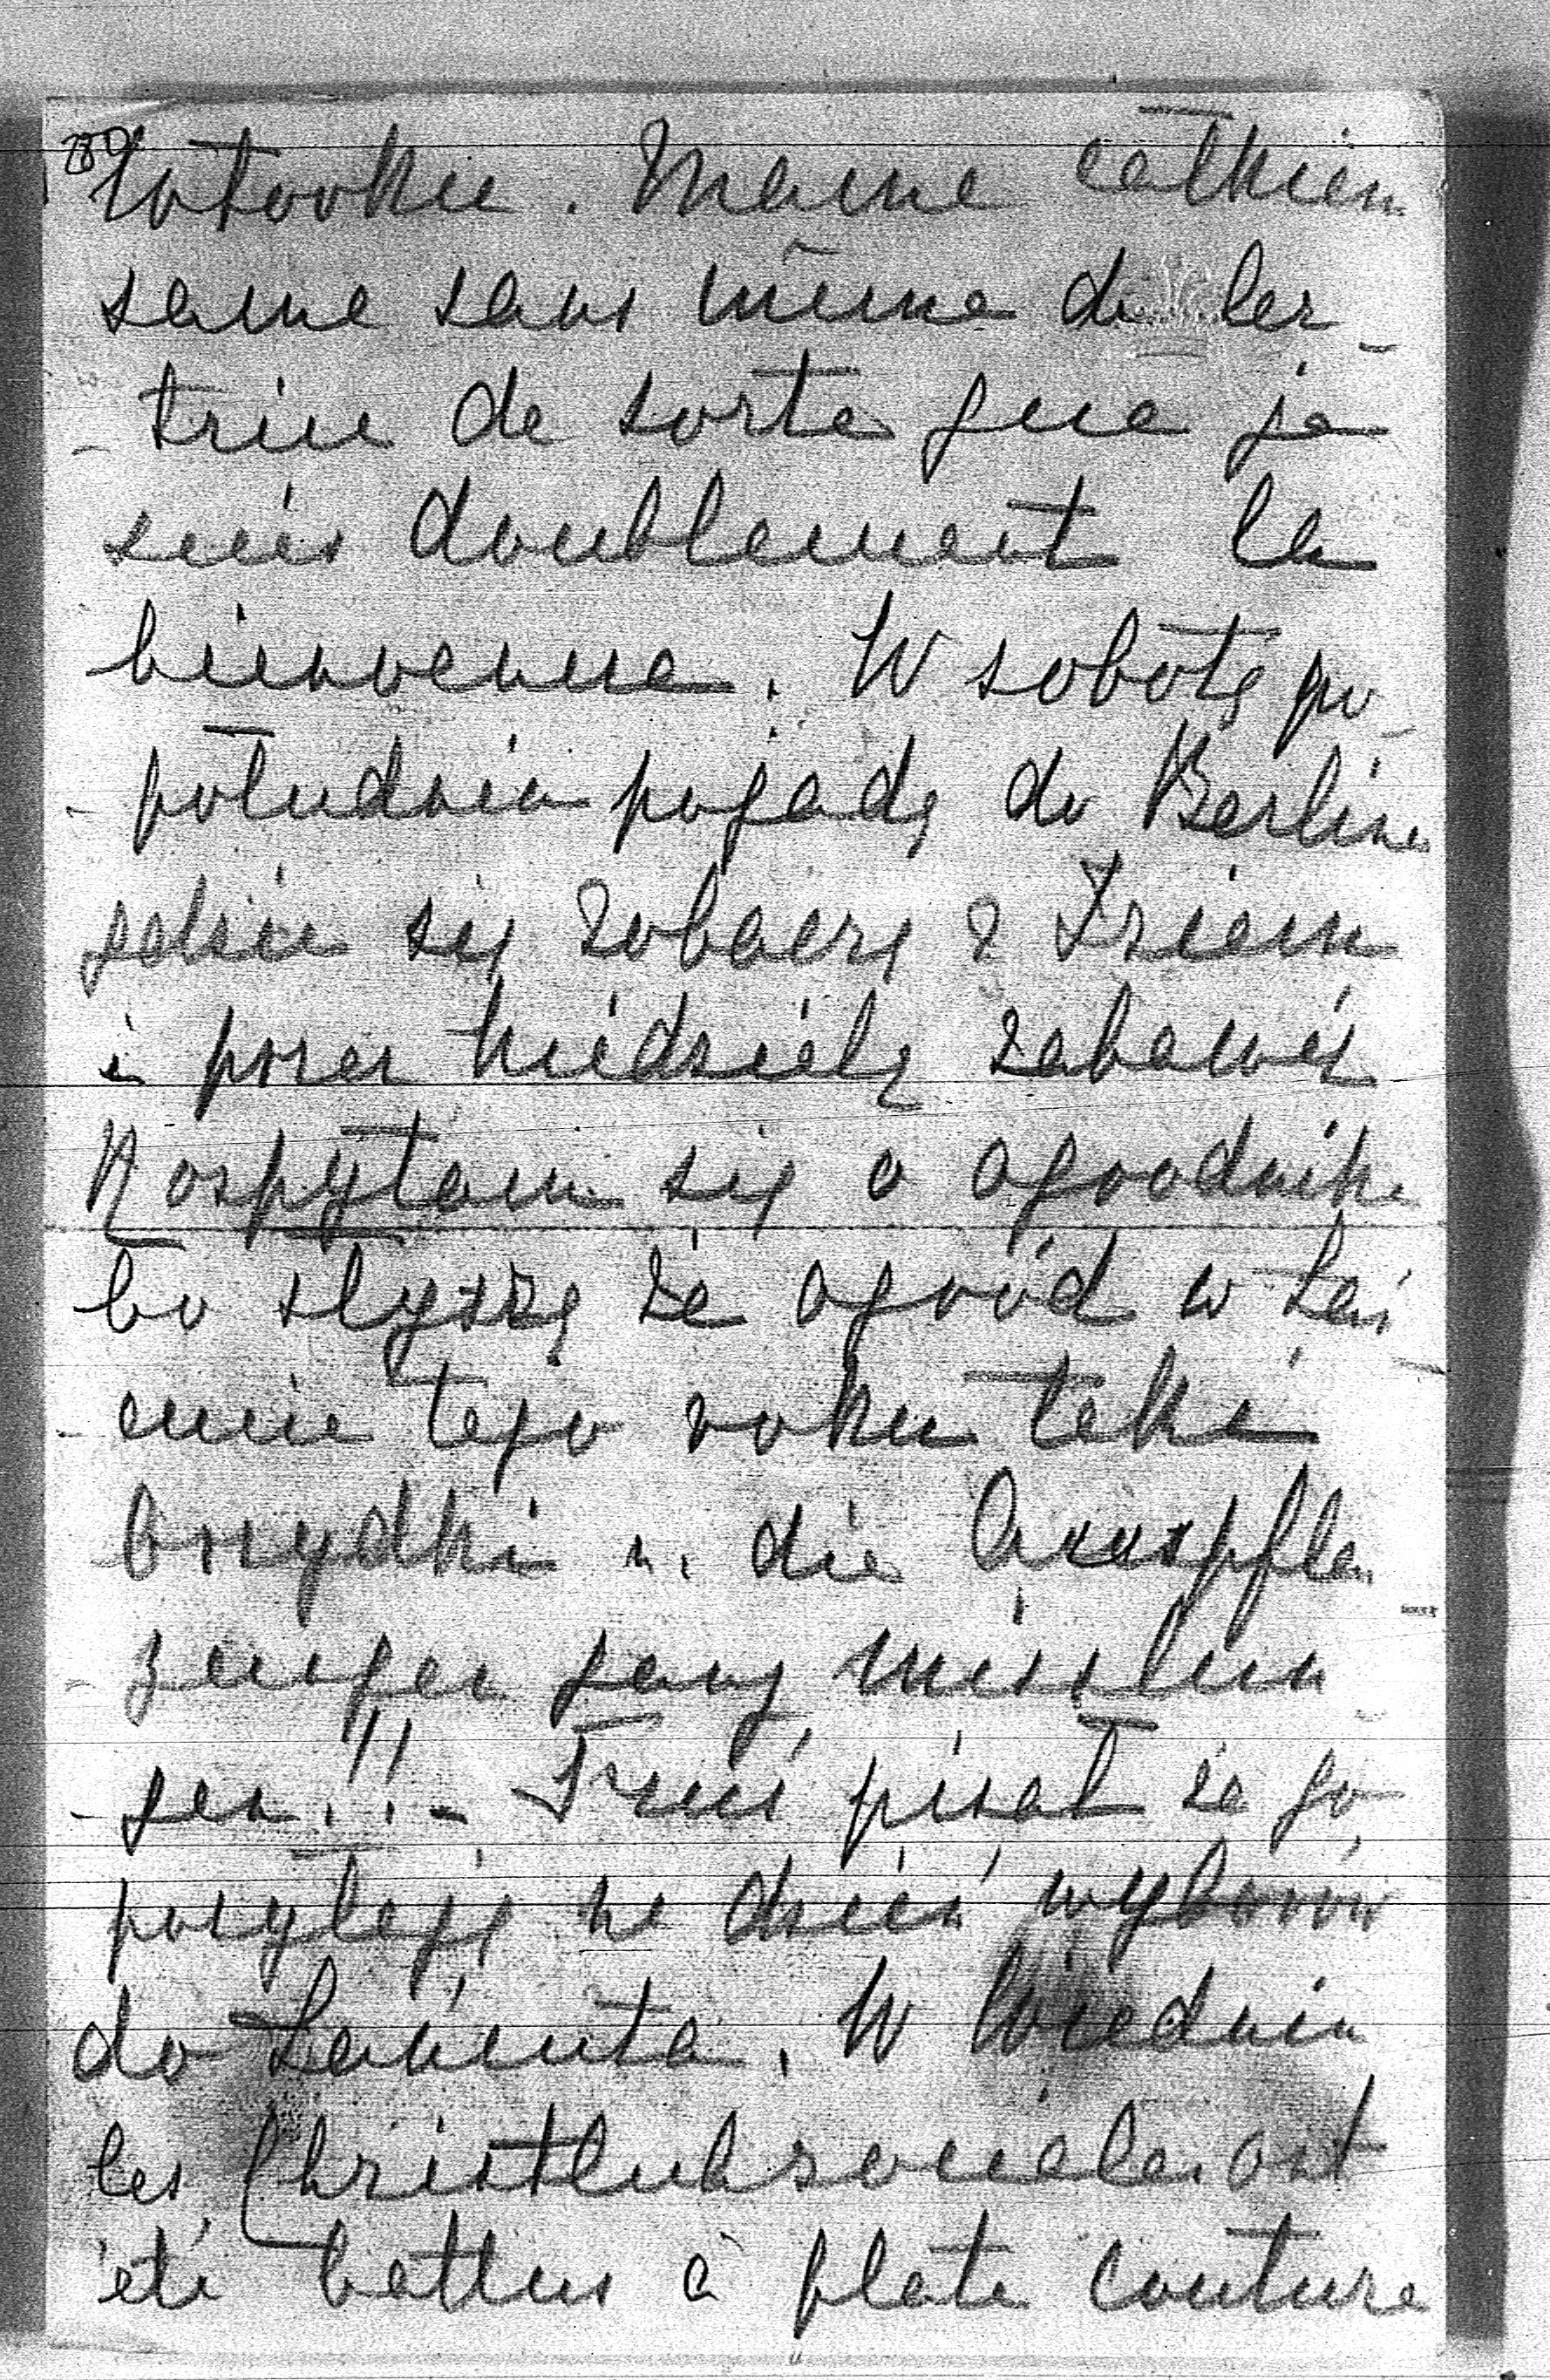 Mama całkiem
sama sans même di lec
-trice de sorte que je
suis doublement la
bienvenue. W sobotę po
-południu pojadę do Berlina
gdzie się zobaczę z
i przez niedzielę zabawię
Rozpytam się o ogrodnika
bo słyszę że ogród w Łań
-cucie tego roku taki
brzydki u. die Auspflan
-zungen ganz misslun
-gen!! - pisał że go
posyłają na dzień wyborów
do Łańcuta. W Wiedniu
les Christlichsociale ont
été battus à plate couture